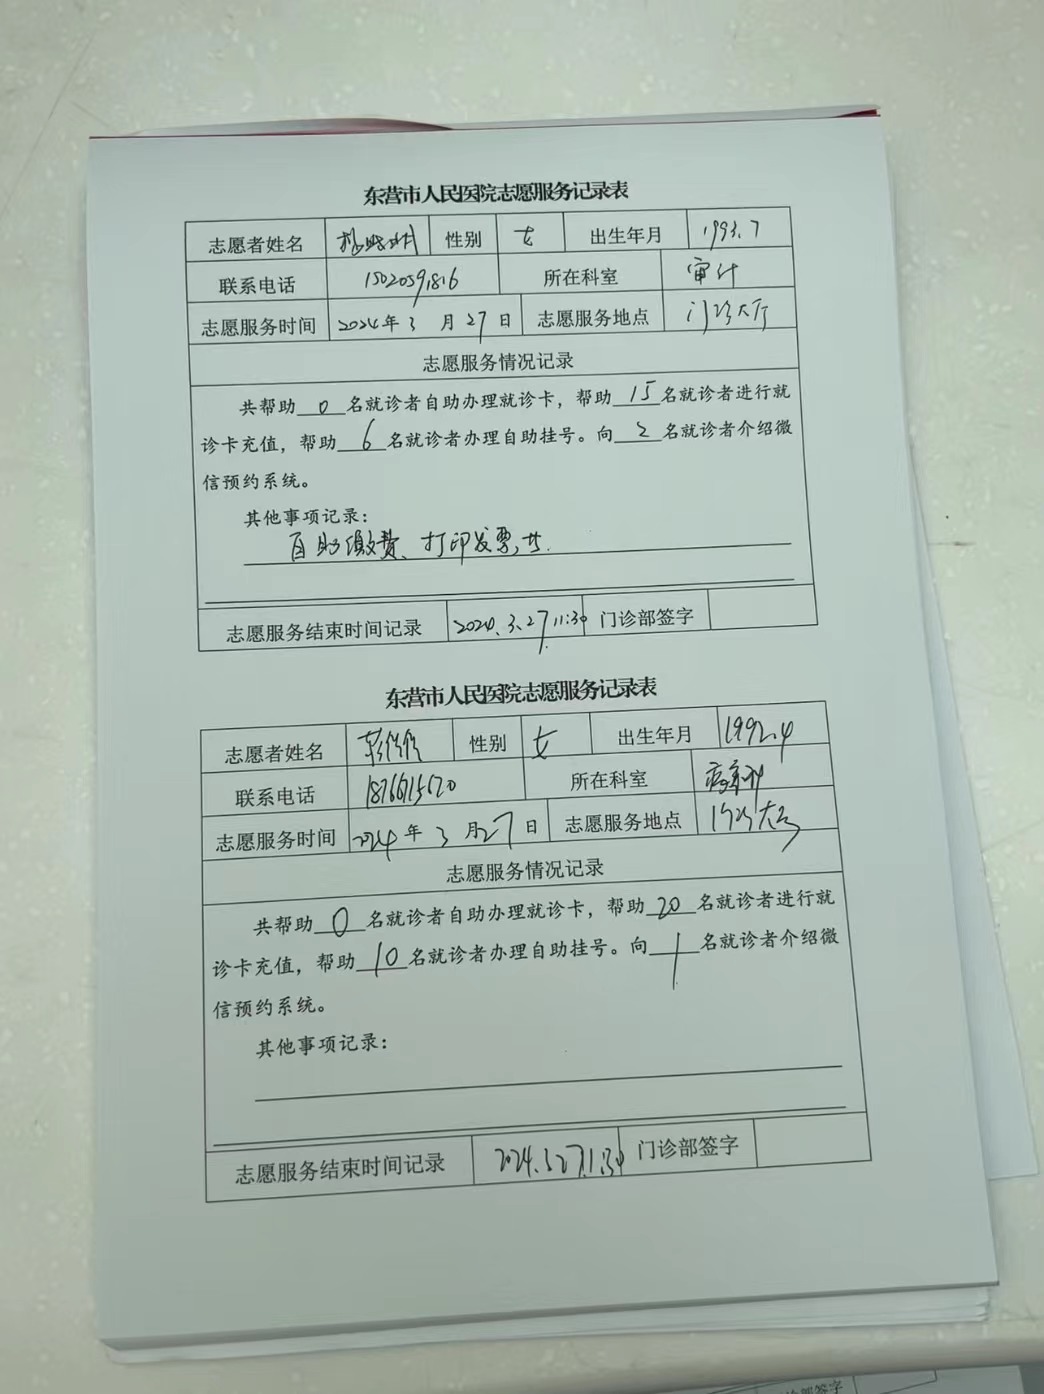 东营市人民医院志愿服务记录表
志愿者姓名 性别 女 出生年月 1993.7
联系电话 15020591816 所在科室 审计
志愿服务时间 2024年3月27日 志愿服务地点 门诊大厅
志愿服务情况记录
共帮助0名就诊者自助办理就诊卡，帮助15名就诊者进行就
诊卡充值，帮助6名就诊者办理自助挂号。向2名就诊者介绍微
信预约系统。
其他事项记录：
自助缴费、打印发票,
志愿服务结束时间记录 2024.3.27.11:30 门诊部签字
东营市人民医院志愿服务记录表
志愿者姓名 性别 女 出生年月 1992.4
联系电话 所在科室
志愿服务时间 2024年3月27日 志愿服务地点 门诊大厅
志愿服务情况记录
共帮助0名就诊者自助办理就诊卡，帮助20名就诊者进行就
诊卡充值，帮助10名就诊者办理自助挂号。向1名就诊者介绍微
信预约系统。
其他事项记录：
志愿服务结束时间记录 2024.3.27.11:30 门诊部签字